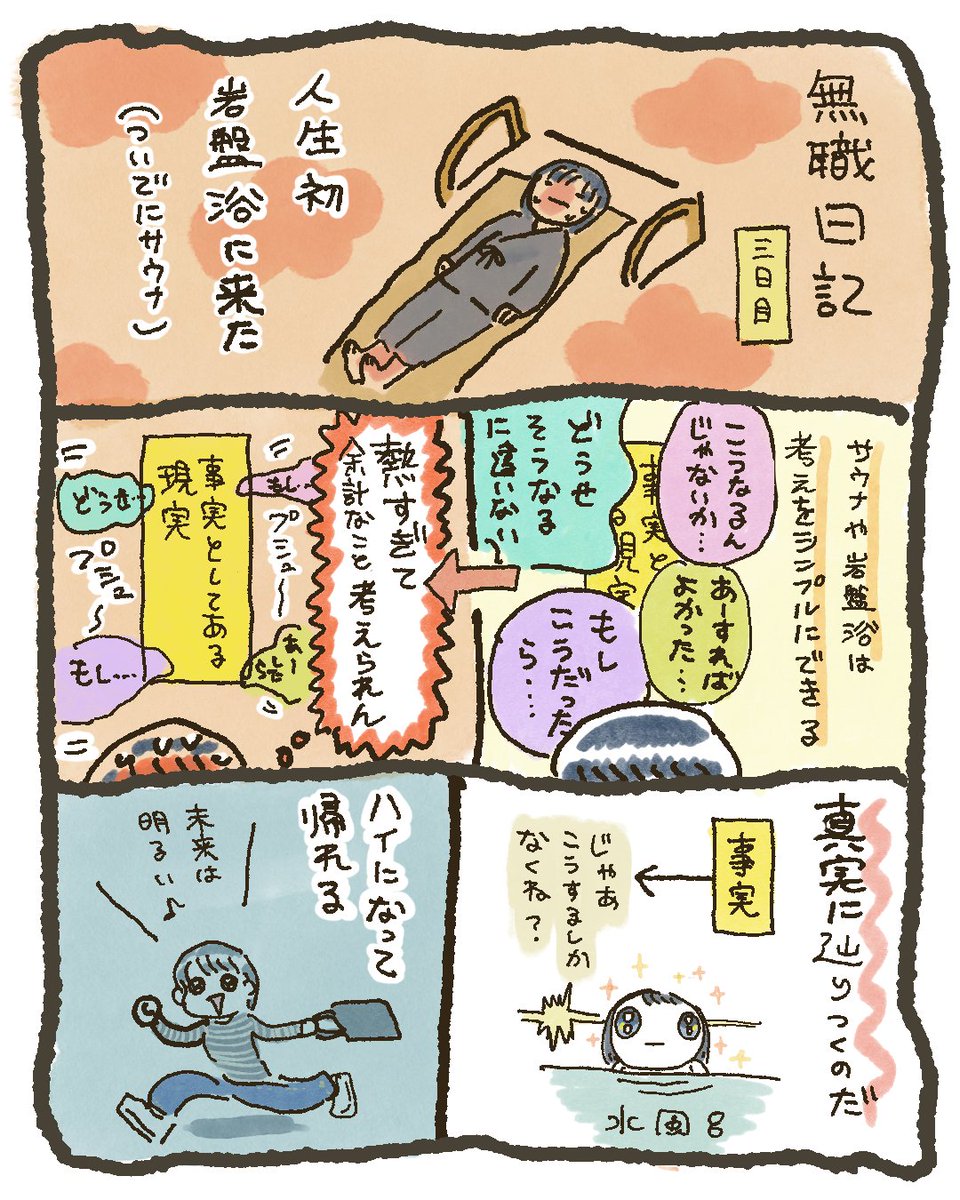 無職日記
三日目
人生初
岩盤浴に来た
(ついでにサウナ)
サウナや岩盤浴は
考えをシンプルにできる
こうなるん
じゃないか…
あーすれば
よかった…
どうせ
そうなる
に違いない〜
事実と
現実
もし
こうだった
ら…
熱すぎて
余計なこと考えられん
もし…
プシュ〜
あー
事実としてある
現実
どうせ…
プシュ〜
もし…
真実に辿りつくのだ
事実
じゃあ
こうするしか
なくね?
水風呂
ハイになって
帰れる
未来は
明るい♪